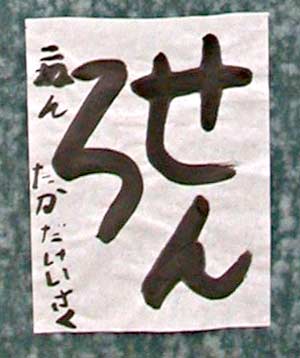 せん
ろ
二ねん たかだけいさく